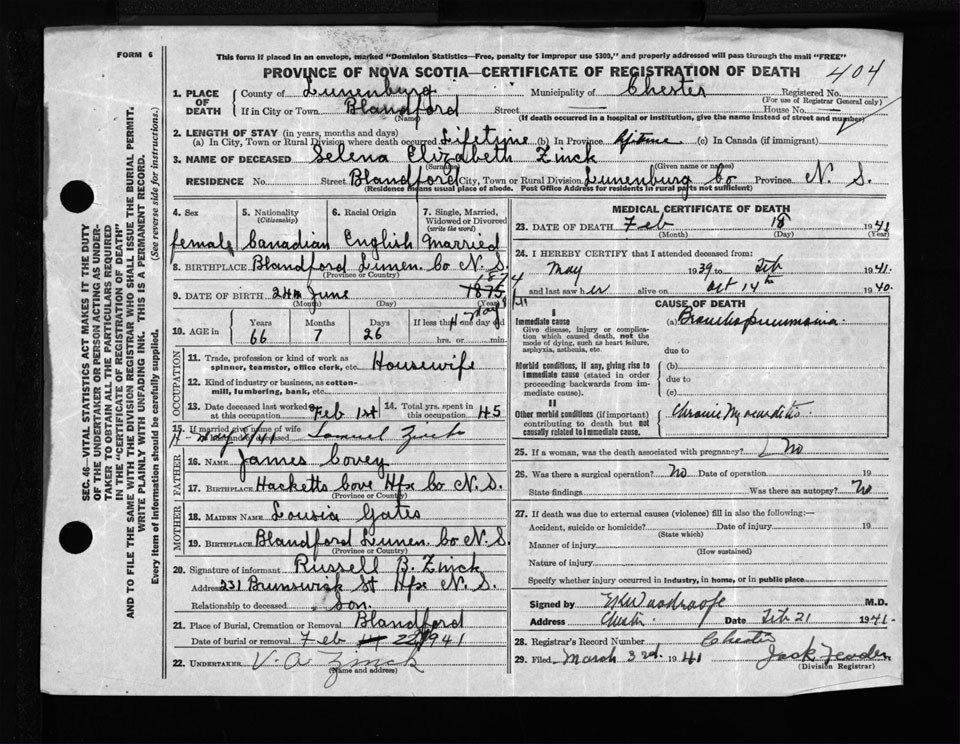 FORM 6
This form if placed in an envelope, marked "Dominion Statistics—Free, penalty for improper use $300," and properly addressed will pass through the mail "FREE"
PROVINCE OF NOVA SCOTIA—CERTIFICATE OF REGISTRATION OF DEATH
404
1. PLACE OF DEATH County of Lunenburg Municipality of Chester Registered No.
(For use of Registrar General only)
If in City or Town Blandford Street — House No.
(Name) (If death occurred in a hospital or institution, give the name instead of street and number)
2. LENGTH OF STAY (in years, months and days)
(a) In City, Town or Rural Division where death occurred Lifetime (b) In Province lifetime (c) In Canada (if immigrant)
3. NAME OF DECEASED Selena Elizabeth Zinck
(Surname) (Given name or names)
RESIDENCE No. Street Blandford City, Town or Rural Division Lunenburg Co Province N. S.
(Residence means usual place of abode. Post Office Address for residents in rural parts not sufficient)
4. Sex 5. Nationality (Citizenship) 6. Racial Origin 7. Single, Married, Widowed or Divorced (write the word)
female Canadian English Married
8. BIRTHPLACE Blandford Lunen. Co N. S.
(Province or Country)
1874
9. DATE OF BIRTH 24th June 1875
(Month) (Day)
10. AGE in Years Months Days If less than one day old
66 7 26 hrs. or min.
OCCUPATION
11. Trade, profession or kind of work as spinner, teamster, office clerk, etc. Housewife
12. Kind of industry or business, as cotton-mill, lumbering, bank, etc.
13. Date deceased last worked at this occupation Feb 1st 14. Total yrs. spent in this occupation 45
15. If married give name of wife Samuel Zinck
FATHER
16. Name James Covey
17. Birthplace Hacketts Cove Hfx Co N. S.
(Province or Country)
MOTHER
18. Maiden Name Lousia Gates
19. Birthplace Blandford Lunen. Co N. S.
(Province or Country)
20. Signature of informant Russell B. Zinck
Address 231 Brunswick St Hfx N. S.
Relationship to deceased Son.
21. Place of Burial, Cremation or Removal Blandford
Date of burial or removal Feb 22 1941
22. UNDERTAKER V. A Zinck
(Name and address)
MEDICAL CERTIFICATE OF DEATH
23. DATE OF DEATH Feb 18 1941
(Month) (Day) (Year)
24. I HEREBY CERTIFY that I attended deceased from:
May 1939 to Feb 1941.
and last saw her alive on Oct 14th 1940.
CAUSE OF DEATH
I
Immediate cause (a) Bronchopneumonia.
Give disease, injury or complication which caused death, not the mode of dying, such as heart failure, asphyxia, asthenia, etc.
due to
Morbid conditions, if any, giving rise to immediate cause (stated in order proceeding backwards from immediate cause). (b)
due to
(c)
II
Other morbid conditions (if important) contributing to death but not causally related to immediate cause. Chronic Myocarditis
25. If a woman, was the death associated with pregnancy? No
26. Was there a surgical operation? No Date of operation 19
State findings Was there an autopsy? No
27. If death was due to external causes (violence) fill in also the following:—
Accident, suicide or homicide? Date of injury 19
(State which)
Manner of injury
(How sustained)
Nature of injury
Specify whether injury occurred in industry, in home, or in public place
Signed by M.D.
Address Chester. Date Feb 21 1941.
28. Registrar's Record Number Chester
29. Filed March 3rd. 1941
(Division Registrar)
SEC. 46—VITAL STATISTICS ACT MAKES IT THE DUTY OF THE UNDERTAKER OR PERSON ACTING AS UNDERTAKER TO OBTAIN ALL THE PARTICULARS REQUIRED IN THE "CERTIFICATE OF REGISTRATION OF DEATH" AND TO FILE THE SAME WITH THE DIVISION REGISTRAR WHO SHALL ISSUE THE BURIAL PERMIT.
WRITE PLAINLY WITH UNFADING INK. THIS IS A PERMANENT RECORD.
Every item of information should be carefully supplied. (See reverse side for instructions.)